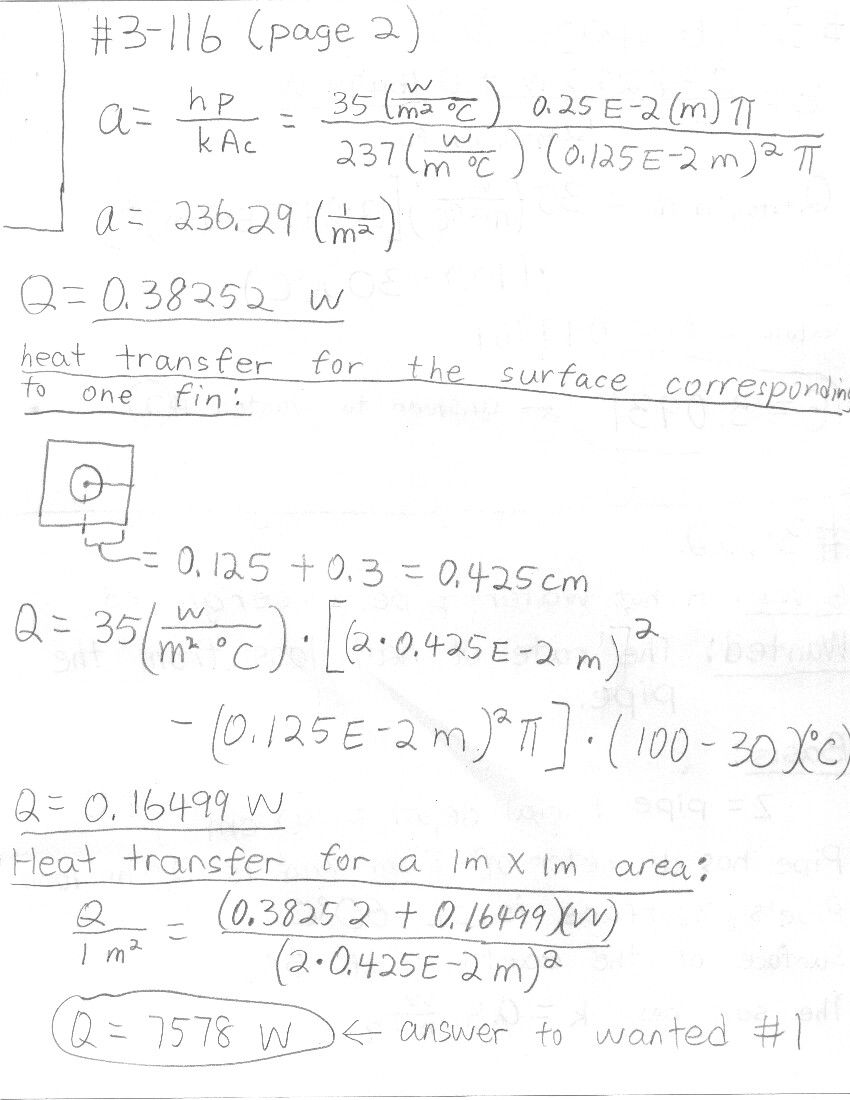 #3-116 (page 2)
a = hP / kAc = 35 (W / m² °C) 0.25E-2(m)π / 237 (W / m °C) (0.125E-2 m)² π
a = 236.29 (1 / m²)
Q = 0.38252 W
heat transfer for the surface corresponding
to one fin:
= 0.125 + 0.3 = 0.425cm
Q = 35(W / m² °C) · [(2·0.425E-2 m)²
- (0.125E-2 m)² π] · (100 - 30)(°C)
Q = 0.16499 W
Heat transfer for a 1m x 1m area:
Q / 1 m² = (0.38252 + 0.16499)(W) / (2·0.425E-2 m)²
Q = 7578 W ← answer to wanted #1